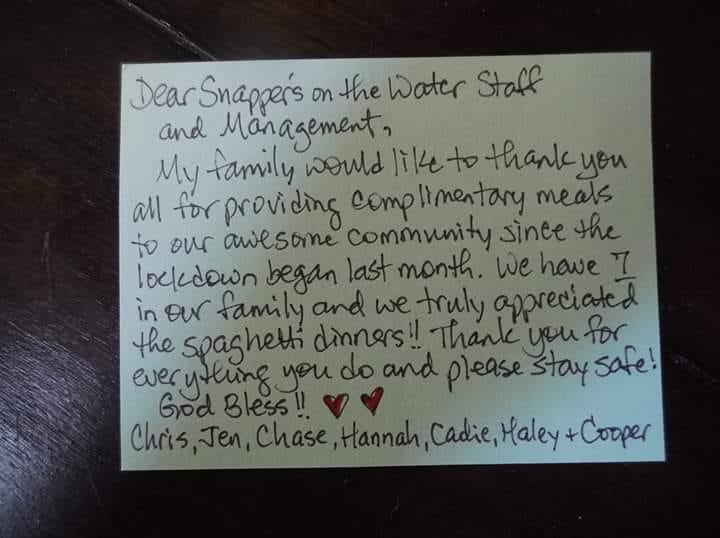 Dear Snapper's on the Water Staff
and Management,
My family would like to thank you
all for providing complimentary meals
to our awesome community since the
lockdown began last month. We have 7
in our family and we truly appreciated
the spaghetti dinners!! Thank you for
everything you do and please stay safe!
God Bless!! ♥ ♥
Chris, Jen, Chase, Hannah, Cadie, Haley + Cooper